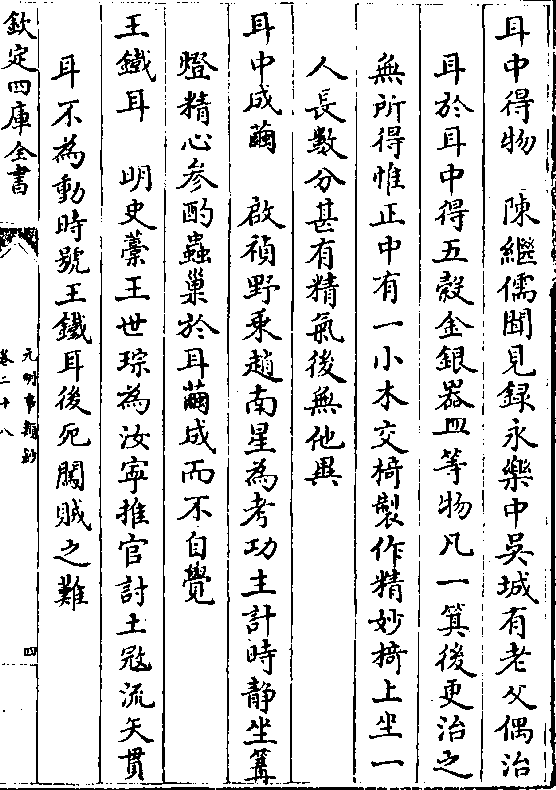 耳中得物　陳繼儒聞見録永樂中吳城有老父偶治
耳於耳中得五穀金銀器皿等物凡一箕後更治之
無所得惟正中有一小木交椅製作精妙椅上坐一
人長數分甚有精氣後無他異
耳中成繭　啟禎野乘趙南星為考功主計時静坐篝
燈精心參酌蟲巢於耳繭成而不自覺
王鐵耳　明史藁王世琮為汝寧推官討土冦流矢貫
耳不為動時號王鐵耳後死闖賊之難
欽定四庫全書
元明事類鈔
卷二十八
四